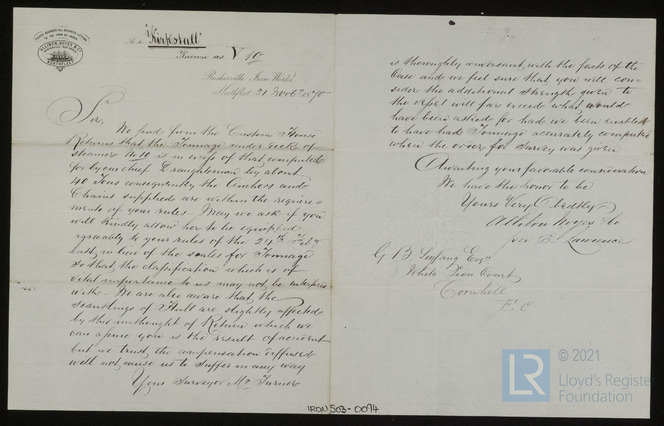 Kirkstall
Known as No 10
Rosherville Iron Works
Northfleet 21 Novbr 1870
Sir,
We find from the Custom House
Returns that the Tonnage under decks of
steamer No 10 is in excess of that computed
for by our chief Draughtsman by about
40 Tons consequently the Anchors and
Chains supplied are within the require-
ments of your rules. May we ask if you
will kindly allow her to be equipped
agreeably to your rules of the 24th Feby
last, in lieu of the scales for Tonnage
so that, the classification which is of
vital importance to us may not be interfered
with. We are also aware that, the
scantlings of Hull are slightly affected
by this in the of Return which we
can assure you is the result of accident
but we trust, the compensation
will not cause us to suffer in any way
Your Surveyor Mr Turner
is thoroughly conversant, with the facts of the
Case and we feel sure that, you will con-
sider the additional strength given to
the vessel will far exceed what would
have been asked for had we been enabled
to have had Tonnage accurately computed
when the order for Survey was given
Awaiting your favorable consideration
We have the honor to be
Yours Very Obedtly
& Co
G B Seyfang Esqre
White Lion Court
Cornhill
E. C
IRON 503-0094
LR
© 2021
Lloyd's Register
Foundation